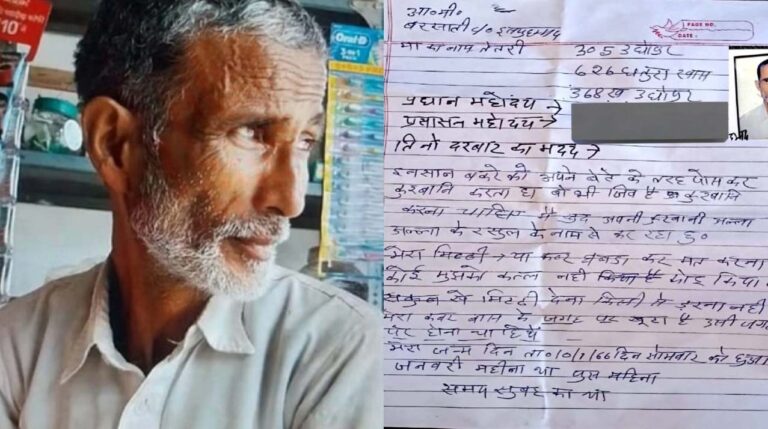 ₹10
Oral-B
3-in-1
PACK
PAGE NO.
DATE :
आ०मी०
बरसाती c/o
मा का नाम तेतरी
305 उद्योडर
626 धतुरा खाम
368ख उद्योडर
प्रधान महोदय →
प्रसासन महोदय →
तिनो दरबार का मदद →
इनसान बकरे को अपने बेटे के तरह पोस कर
कुरबानि करता है वो भी जिव है कुरबानि
करना चाहिए मै खुद अपनी कुरबानी अल्ला
अल्ला के रसुल के नाम से कर रहा हु०
मेरा मिट्टी → या कबर घबडा कर मत करना
कोई मुझको कतल नही किया है
सकुन से मिट्टी देना किसी से डरना नही
मेरा कबर बास के जगह पर खुटा है उसी जगह
पर होना चाहिये
मेरा जन्म दिन ता०10/1/66 दिन सोमवार को हुआ
जनवरी महीना था पुस महिना
समय सुबह का था